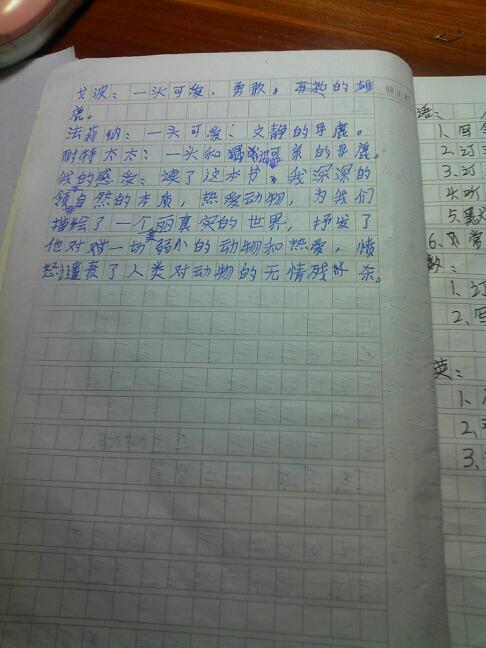 戈波：一头可爱、勇敢，有趣的雄
鹿。
法莉纳：一头可爱、文静的母鹿。
耐特太太：一头和蔼可亲的母鹿。
我的感受：读了这本书，我深深的
领自然的本质，热爱动物，为我们
描绘了一个美丽真实的世界，抒发了
他对对一切弱小的动物和热爱，愤
怒谴责了人类对动物的无情残杀。
语：
1、写
2、订
3、订
4、听
5、
6、常
数：
1、订
2、写
英：
1、
2、
3、